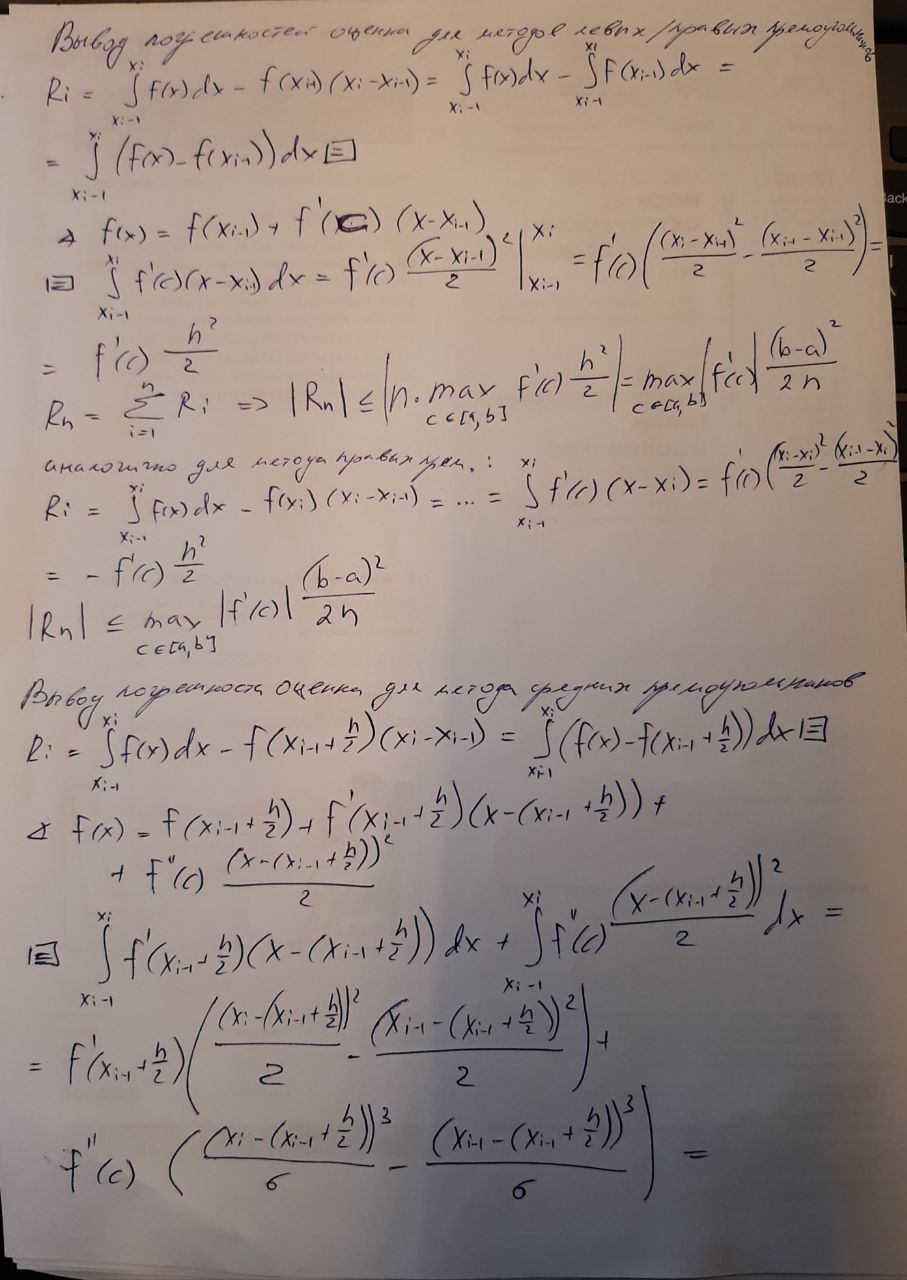 Вывод погрешностей оценки для методов левых/правых прямоугольников
Ri = ∫_{xi-1}^{xi} f(x)dx - f(xi-1)(xi-xi-1) = ∫_{xi-1}^{xi} f(x)dx - ∫_{xi-1}^{xi} f(xi-1)dx =
= ∫_{xi-1}^{xi} (f(x)-f(xi-1))dx ⊟
∆ f(x) = f(xi-1) + f'(c) (x-xi-1)
⊟ ∫_{xi-1}^{xi} f'(c)(x-xi-1)dx = f'(c) (x-xi-1)²/2 |_{xi-1}^{xi} = f'(c) ((xi-xi-1)²/2 - (xi-1-xi-1)²/2) =
= f'(c) h²/2
Rn = ∑_{i=1}^{n} Ri => |Rn| ≤ |n·max_{c∈[a,b]} f'(c) h²/2| = max_{c∈[a,b]} |f'(c)| (b-a)²/2n
аналогично для метода правых прям. :
Ri = ∫_{xi-1}^{xi} f(x)dx - f(xi)(xi-xi-1) = ... = ∫_{xi-1}^{xi} f'(c)(x-xi) = f'(c) ((xi-xi)²/2 - (xi-1-xi)²/2)
= - f'(c) h²/2
|Rn| ≤ max_{c∈[a,b]} |f'(c)| (b-a)²/2n
Вывод погрешности оценки для метода средних прямоугольников
Ri = ∫_{xi-1}^{xi} f(x)dx - f(xi-1+h/2)(xi-xi-1) = ∫_{xi-1}^{xi} (f(x)-f(xi-1+h/2))dx ⊟
∆ f(x) = f(xi-1+h/2) + f'(xi-1+h/2)(x-(xi-1+h/2)) +
+ f''(c) (x-(xi-1+h/2))²/2
⊟ ∫_{xi-1}^{xi} f'(xi-1+h/2)(x-(xi-1+h/2))dx + ∫_{xi-1}^{xi} f''(c) (x-(xi-1+h/2))²/2 dx =
= f'(xi-1+h/2) ((xi-(xi-1+h/2))²/2 - (xi-1-(xi-1+h/2))²/2) +
f''(c) ((xi-(xi-1+h/2))³/6 - (xi-1-(xi-1+h/2))³/6) =